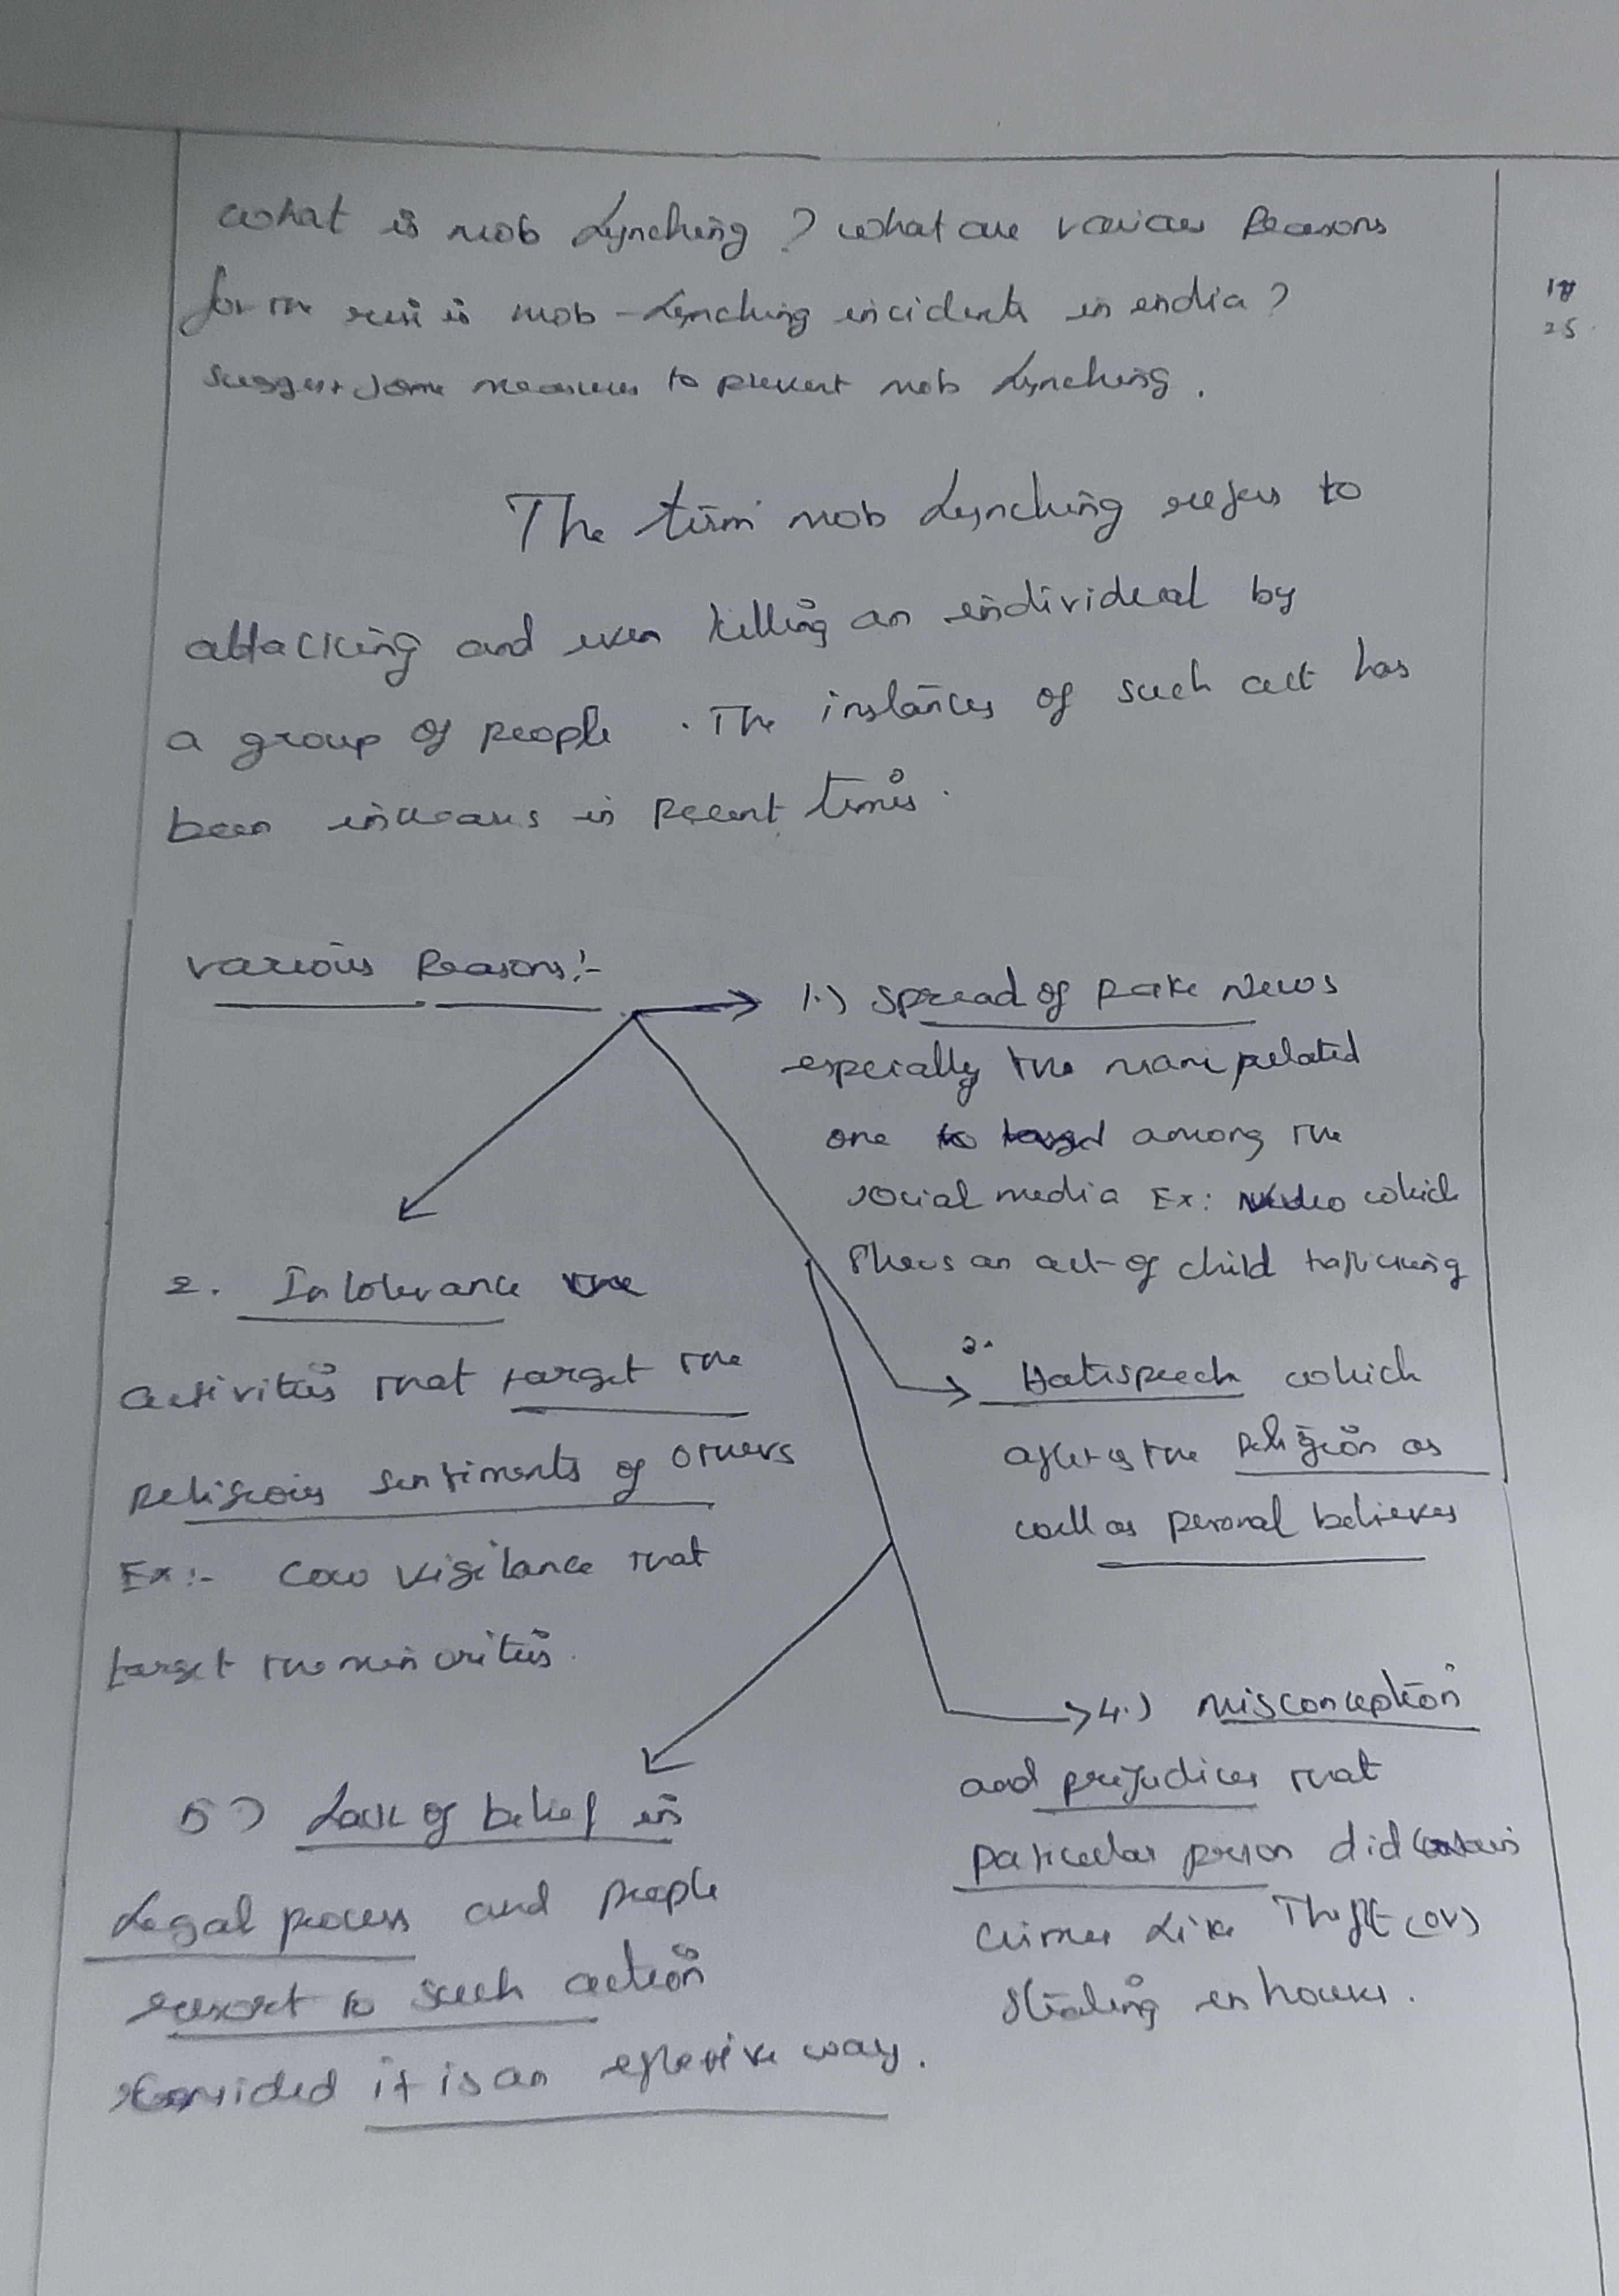 what is mob Lynching ? what are various Reasons
for the rise is mob - Lynching incidents in india ?
suggest some measures to prevent mob Lynching .
18
25
The term mob Lynching refers to
attacking and even killing an individual by
a group of people . The instances of such act has
been increaus in recent times .
various Reasons :-
1.) Spread of Fake News
especially the manipulated
one among the
social media Ex: Video which
shows an act of child trafficking
2. Intolerance the
activities that target the
religious sentiments of others
Ex :- Cow vigilance that
target the minorities .
3. Hatespeech which
affects the religion as
well as personal believes
4.) Misconception
and prejudices that
particular person did
crimes Like Theft (or)
Stealing in houses .
5) Lack of belief in
Legal process and people
resort to such action
it is an effective way .